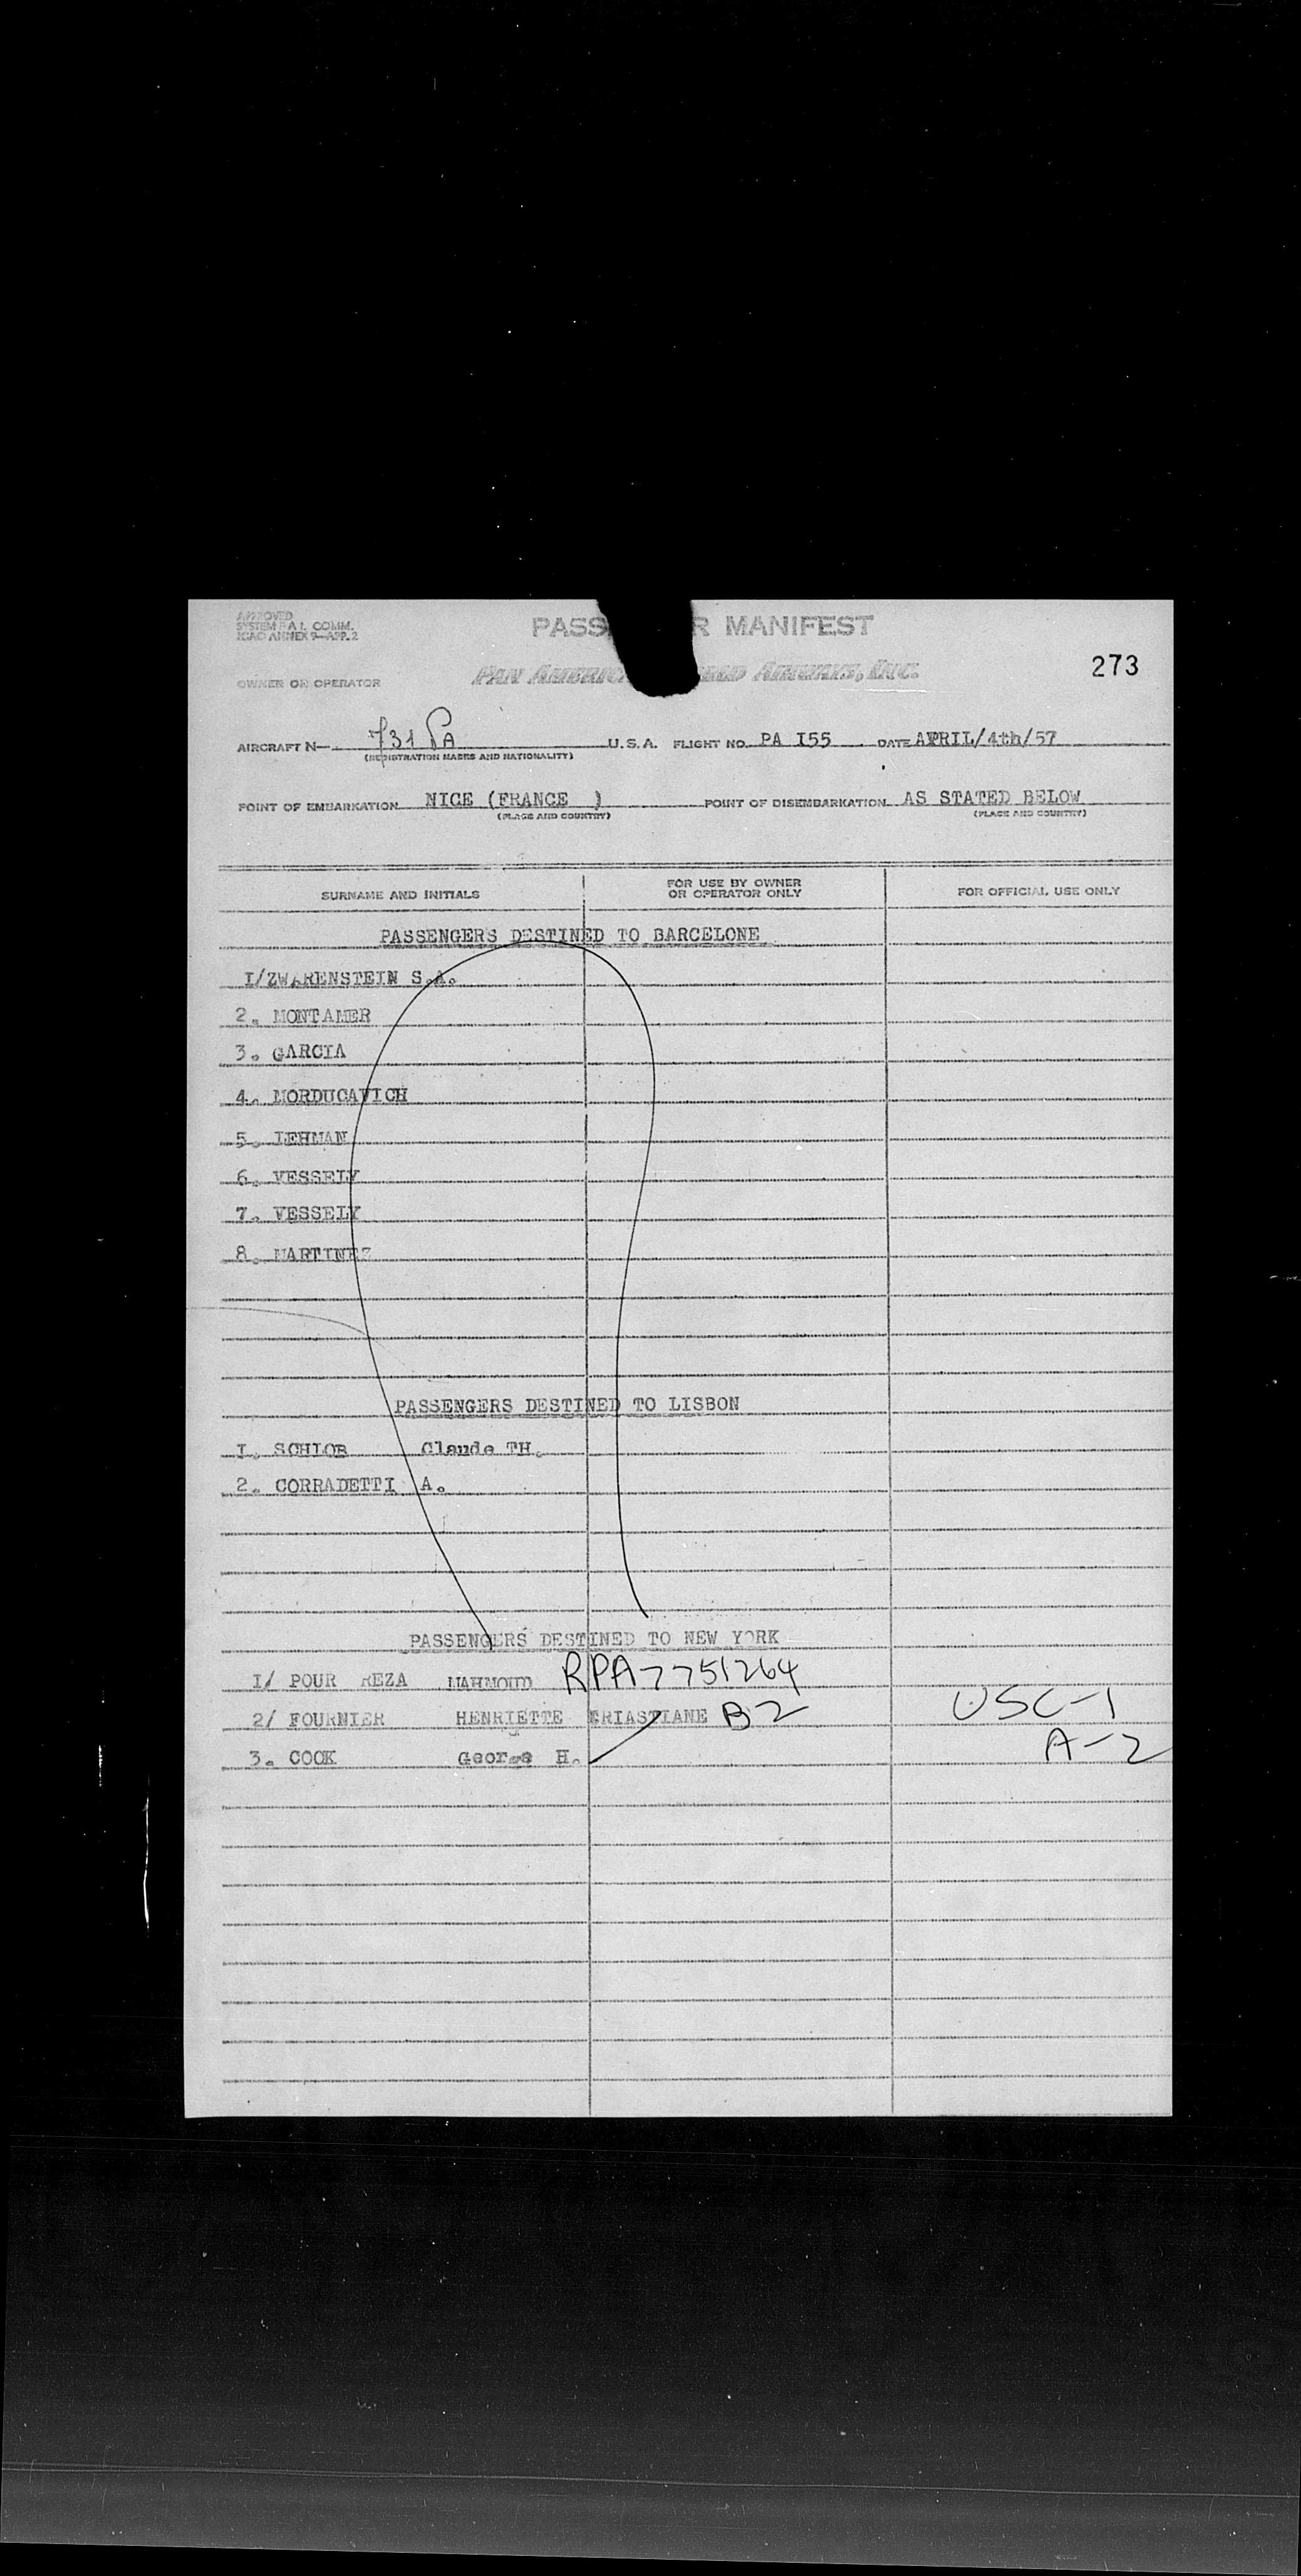 APPROVED
SYSTEM F A I. COMM.
ICAO ANNEX 9—APP. 2
PASS R MANIFEST
273
OWNER OR OPERATOR
PAN AMERIC AIRWAYS, INC.
AIRCRAFT N— 731 PA U.S.A. FLIGHT NO. PA I55 DATE APRIL/4th/57
(REGISTRATION MARKS AND NATIONALITY)
POINT OF EMBARKATION NICE (FRANCE ) POINT OF DISEMBARKATION AS STATED BELOW
(PLACE AND COUNTRY) (PLACE AND COUNTRY)
SURNAME AND INITIALS
FOR USE BY OWNER
OR OPERATOR ONLY
FOR OFFICIAL USE ONLY
PASSENGERS DESTINED TO BARCELONE
I/ZWARENSTEIN S.A.
2. MONTAMER
3. GARCIA
4. MORDUCAVICH
5. LEHMAN
6. VESSELY
7. VESSELY
8. MARTINEZ
PASSENGERS DESTINED TO LISBON
I. SCHLOB Claude TH.
2. CORRADETTI A.
PASSENGERS DESTINED TO NEW YORK
I/ POUR REZA MAHMOUD RPA7751264
2/ FOURNIER HENRIETTE CRIASTIANE B2 USC-1
3. COOK George H. A-2